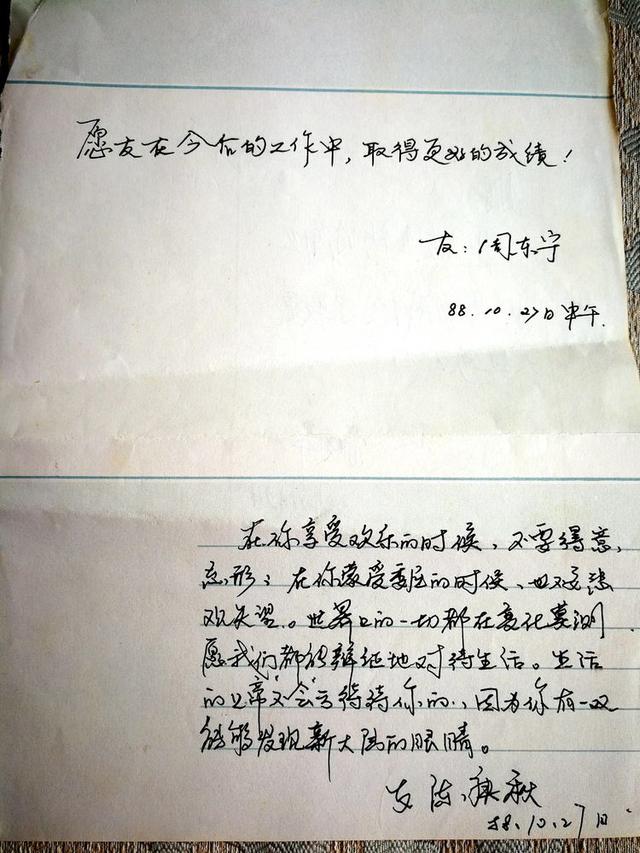 愿友在今后的工作中，取得更好的成绩！
友：周东宁
88.10.27日中午.
在你享受欢乐的时候，不要得意
忘形；在你蒙受委屈的时候，也不要悲
观失望。世界上的一切都在变化莫测
愿我们都能辩证地对待生活。生活
的上帝"不会"亏待你的，因为你有一双
能够发现新大陆的眼睛。
友 陈 秋
88.10.27日